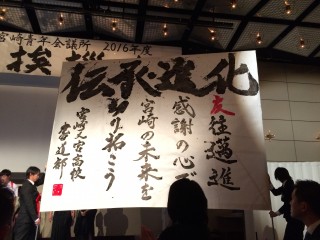 宮崎青年会議所 2016年度
挨
伝承進化
友往邁進
感謝の心で
宮崎の未来を
切り拓こう
書道部